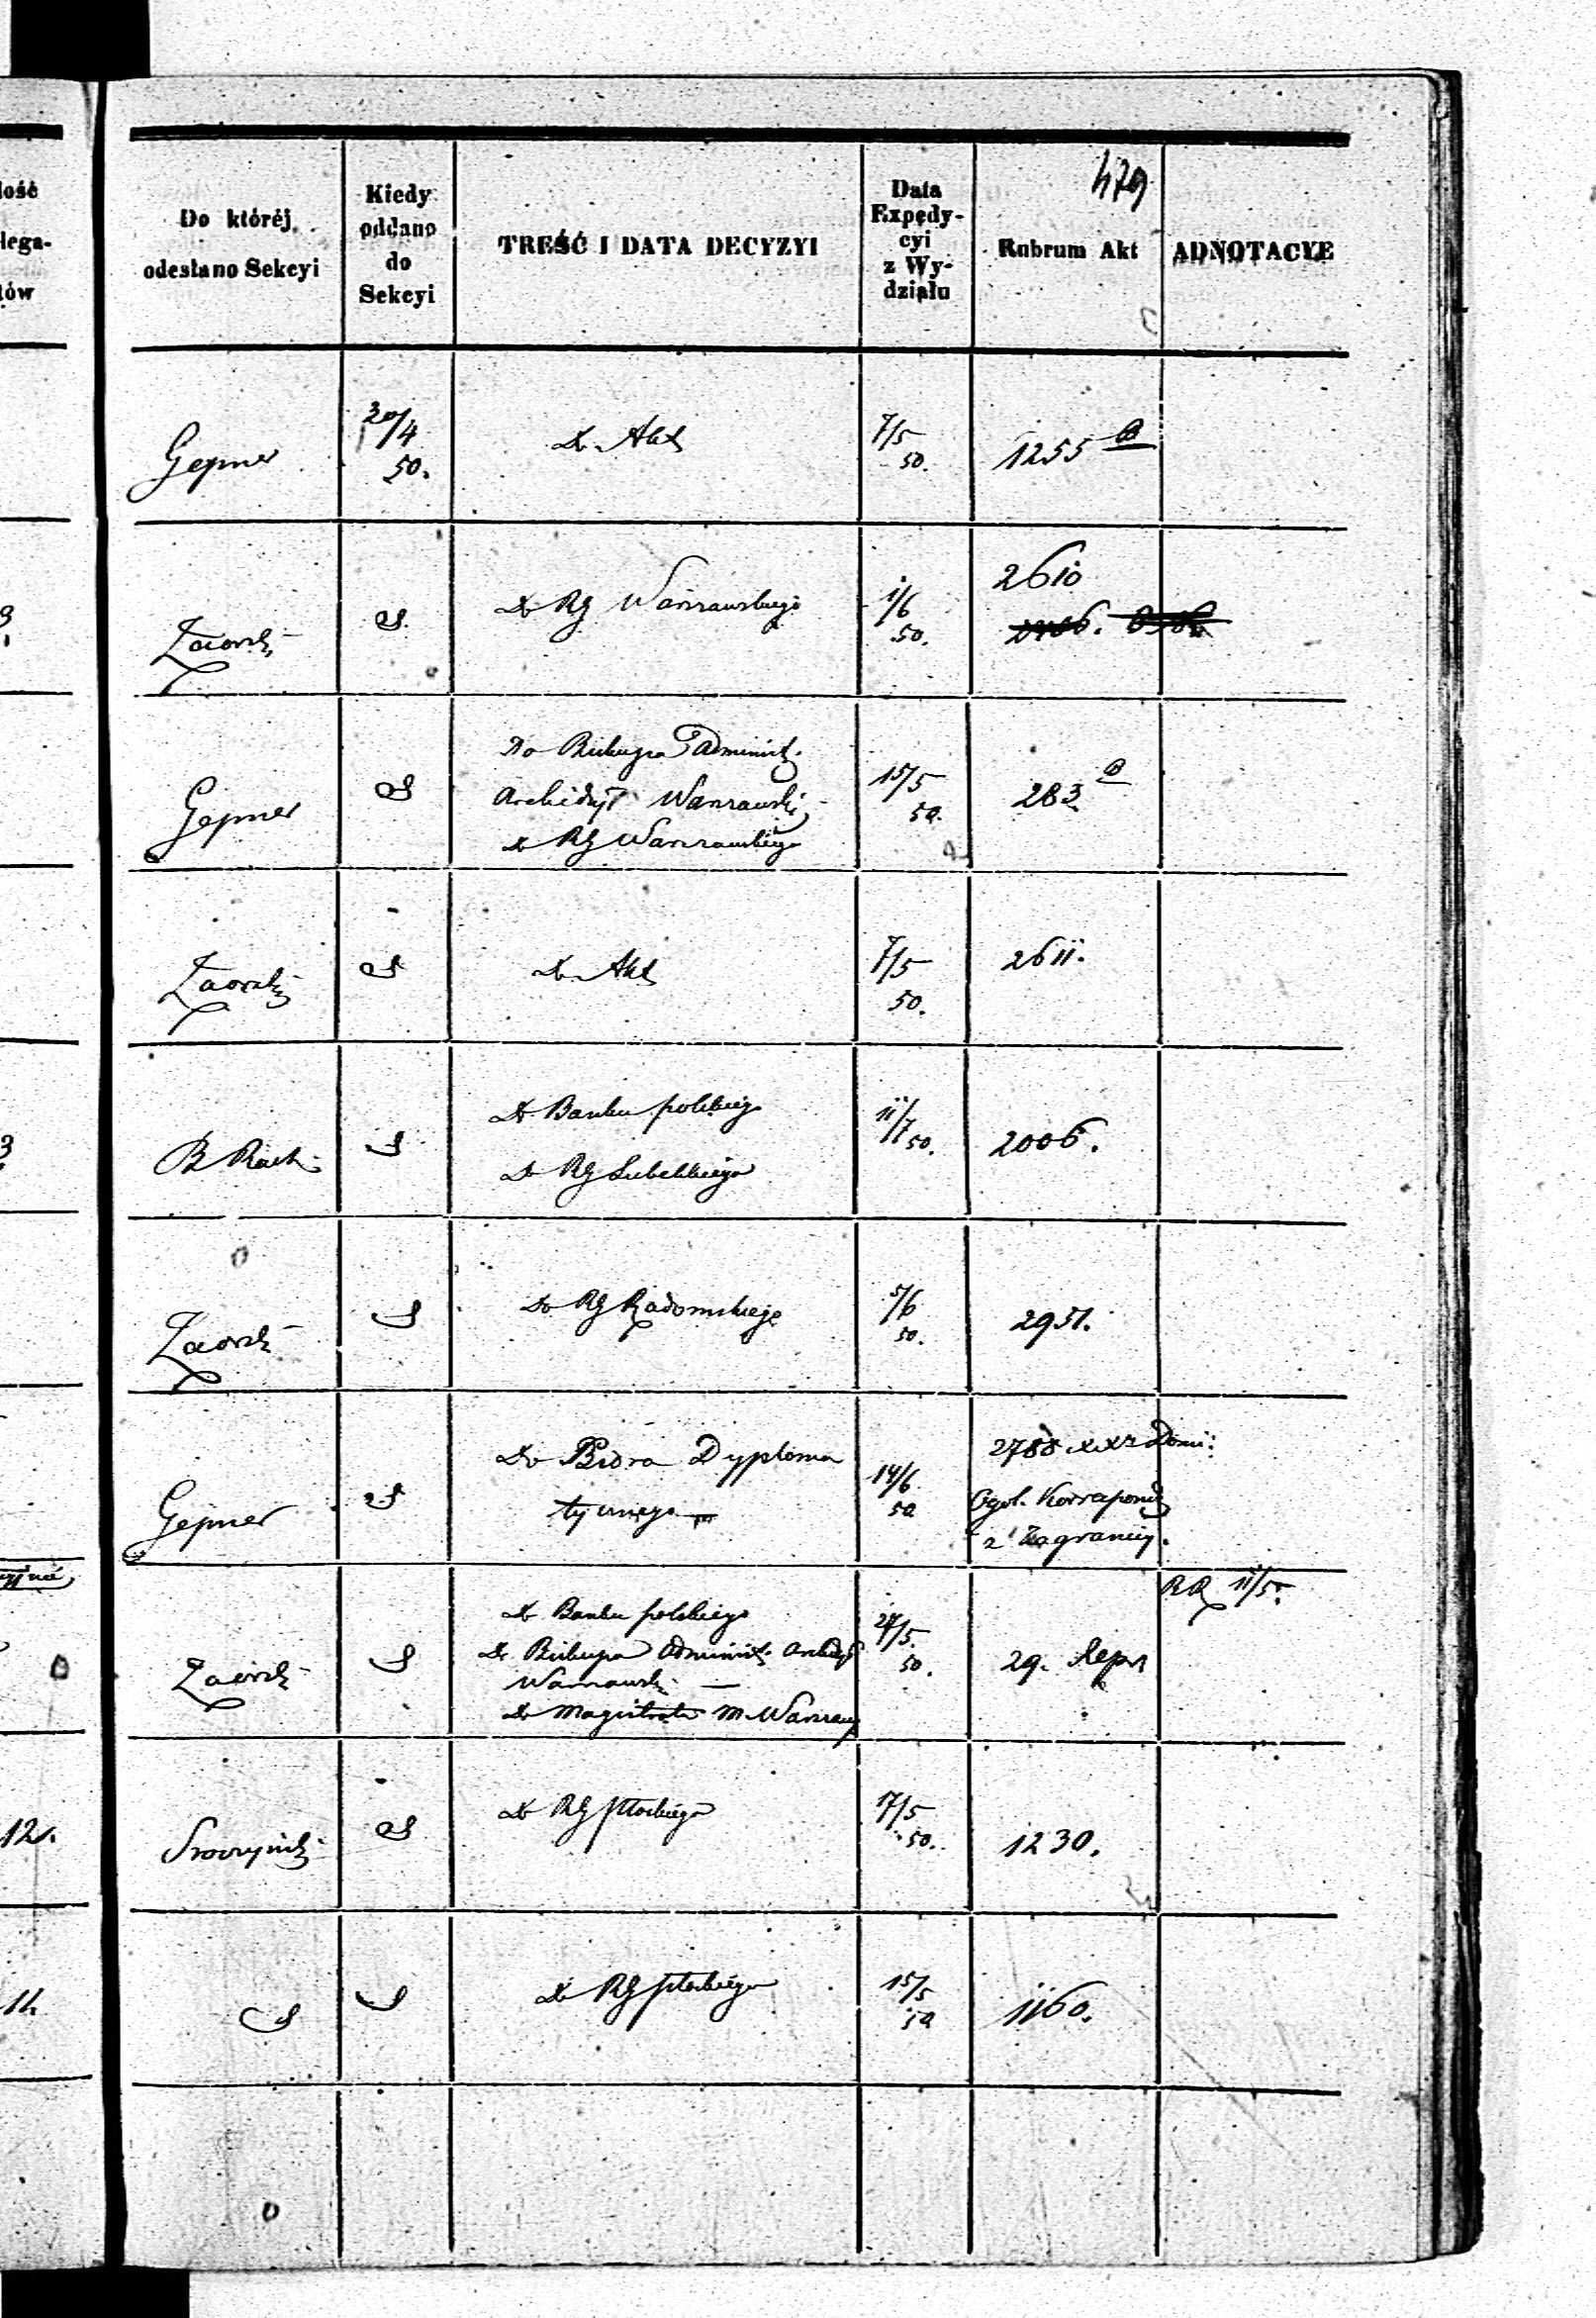 479
lość
lega-
tów
Do któréj
odesłano Sekcyi
Kiedy
oddano
do
Sekcyi
TREŚĆ I DATA DECYZYI
Data
Expedy-
cyi
z Wy-
działu
Rubrum Akt
ADNOTACYE
Gepner
30/4
50.
Do Akt
7/5
50.
1255 B
Zaorski
Do RG Warszawskiego
1/6
50.
2610
Gepner
Do Biskupa Administ.
Archidyi Warszawski
Do RG Warszawskiego
15/5
50.
283 B
Zaorski
Do Akt
7/5
50.
2611.
B Rach.
Do Banku polskiego
Do RG Lubelskiego
11/7 50.
2006.
Zaorski
Do RG Radomskiego
5/6
50.
2951.
Gepner
Do Biora Dyploma
tycznego
14/6
50
2788
Ogól. Korrespond
z Zagranicy.
Zaorski
Do Banku polskiego
Do Biskupa Administ. Archidy
Warszawski
Do Magistratu M. Warszawy
27/5.
50.
29. Repr
11/5.
Do RG Płockiego
17/5
50.
1230.
12.
Do RG Płockiego
15/5
50
1160.